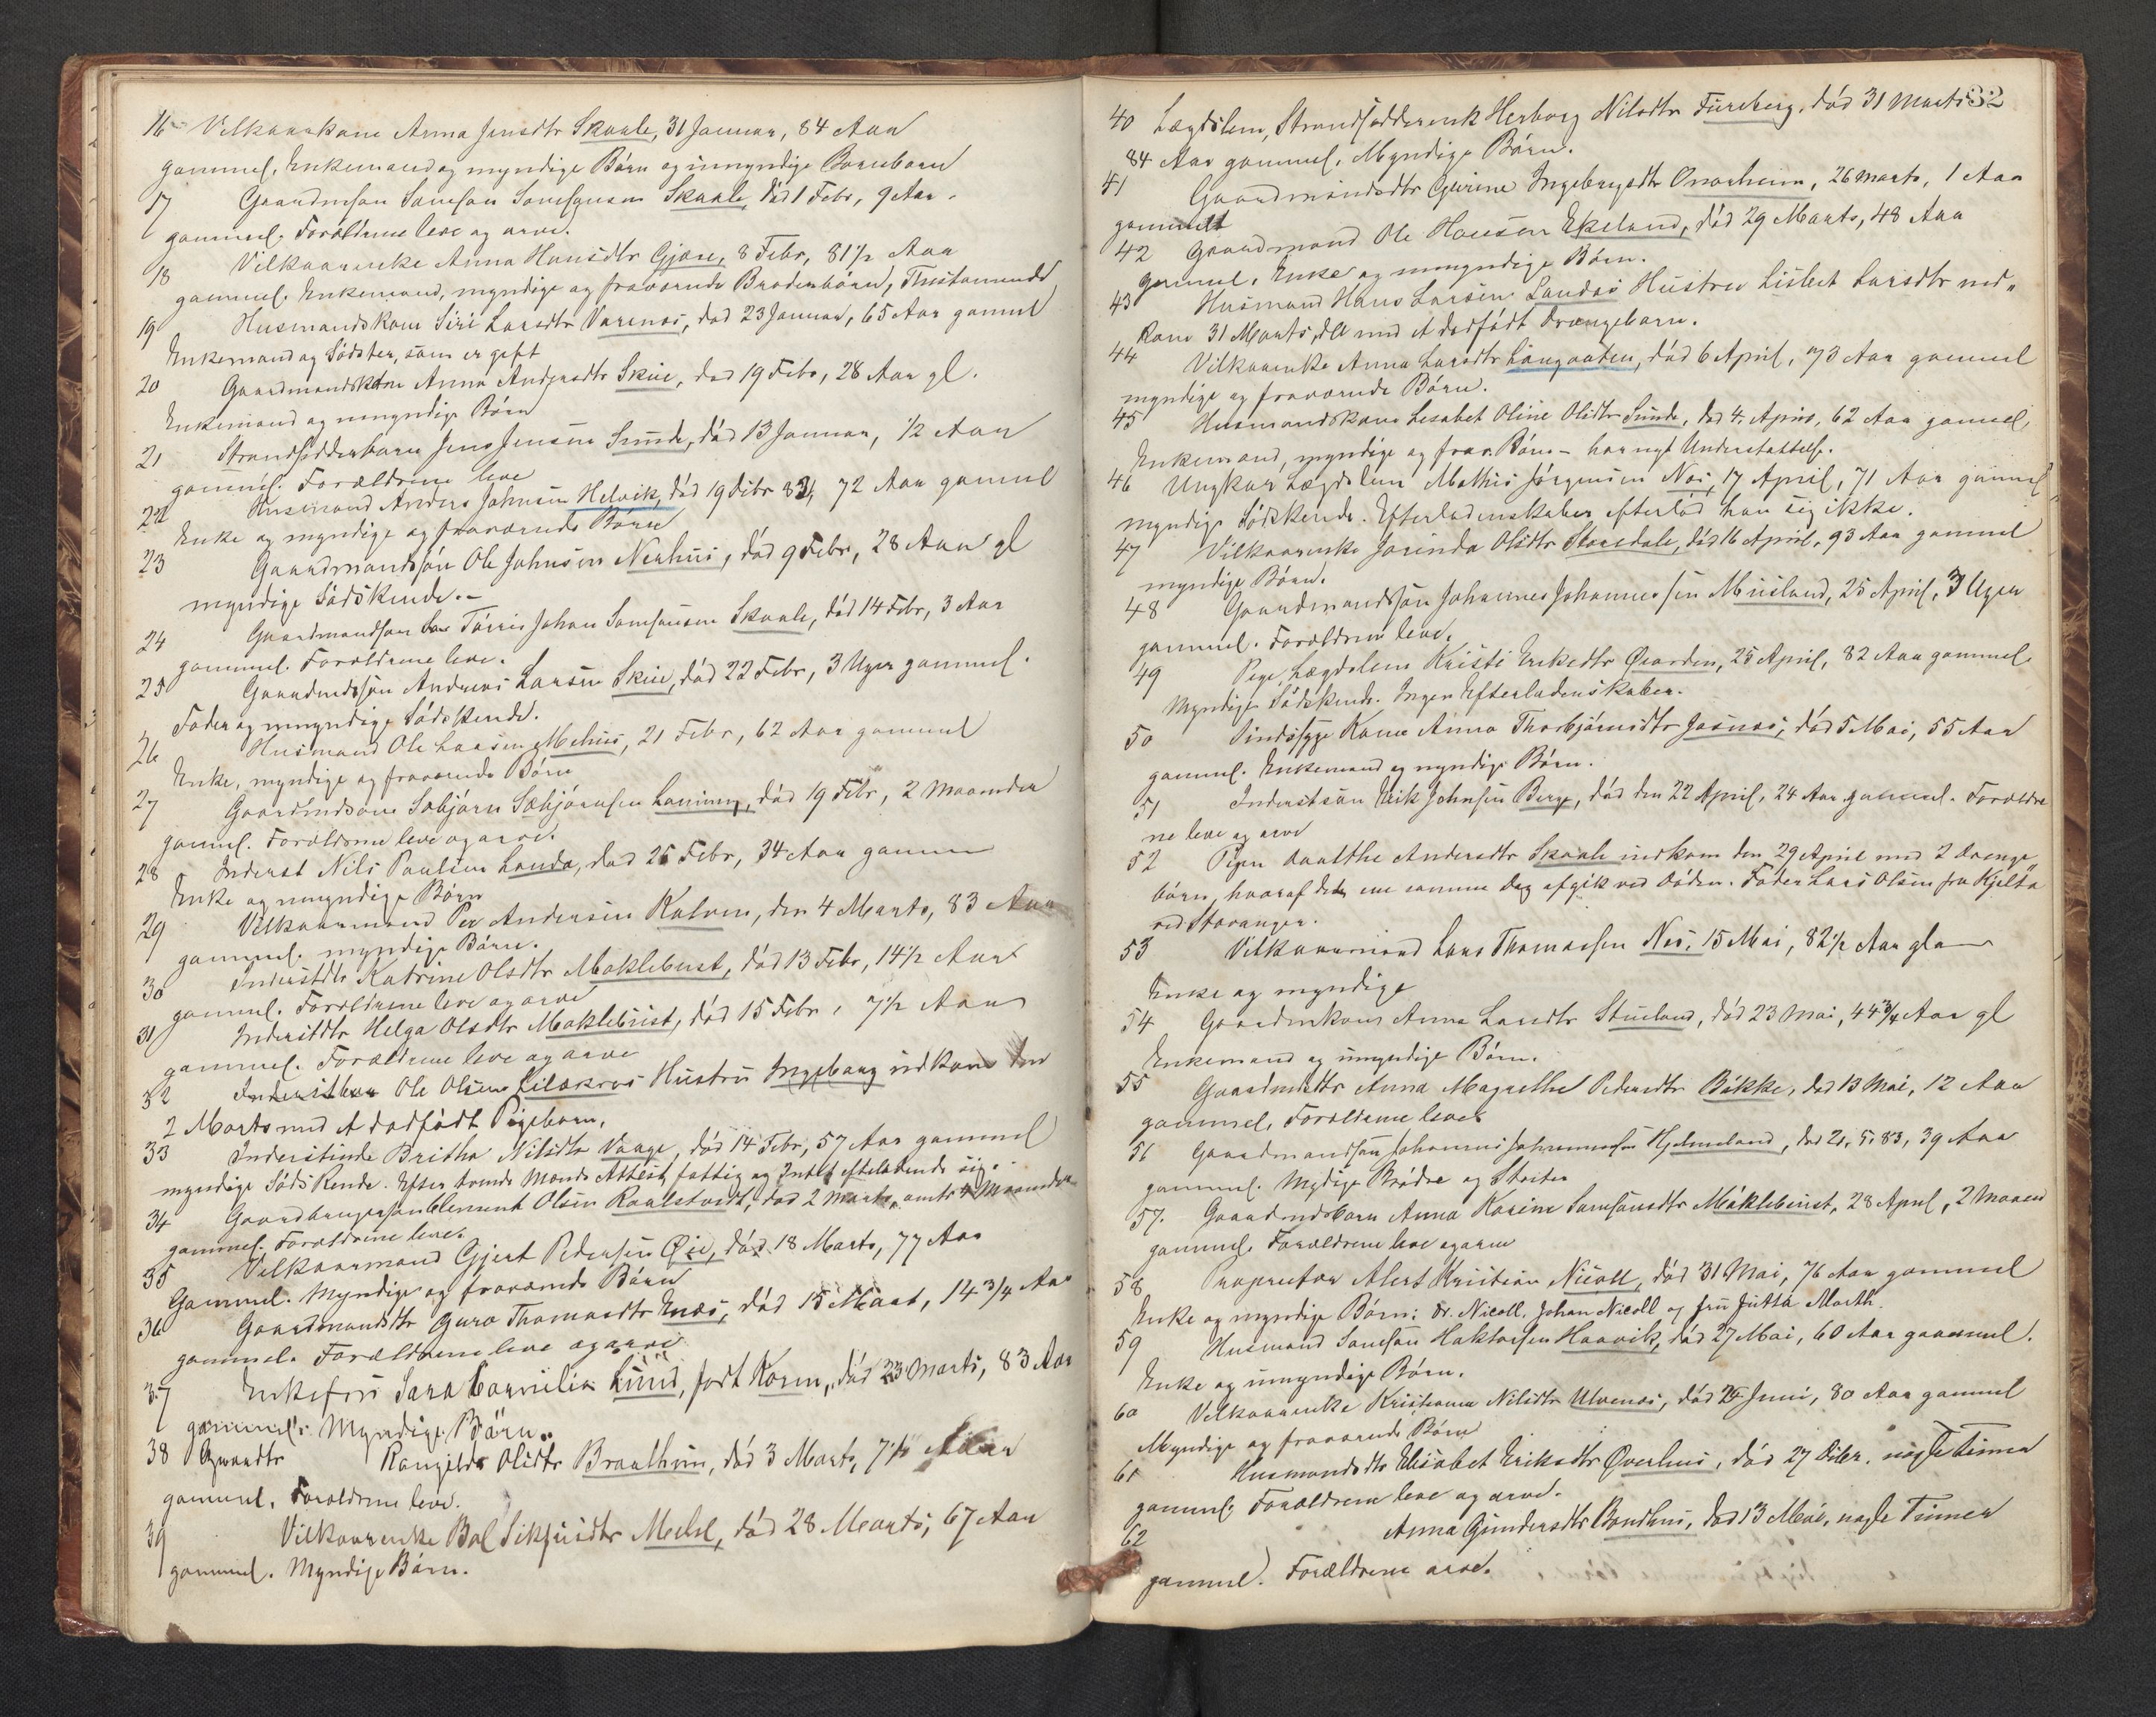 16 Vilkaarskone Anna Jensdtr Skaale, 31 Januar, 84 Aar
gammel, Enkemand og myndige Børn og umyndige Børnebørn
17 Gaardmsøn Samson Samsonsen Skaale, død 1 Febr, 9 Aar
gammel. Forældrene leve og arve.
18 Vilkaarsenke Anna Hansdtr Gjøen, 8 Febr, 81 1/2 Aar
gammel. Enkemand, myndige og fraværende Broderbørn, Thestamente
19 Husmandskone Siri Larsdtr Varenes, død 23 Januar, 65 Aar gammel
Enkemand og Södster, som er gift
20 Gaardmandskone Anna Andersdtr Skeie, død 19 Febr, 28 Aar gl.
Enkemand og umyndige Børn
21 Strandsidderbarn Jens Jensen Sunde, død 13 Januar, 1/2 Aar
gammel. Forældrene leve
22 Husmand Anders Johnsen Helvik, død 19 Febr 83, 72 Aar gammel
Enke og myndige og fraværende Børn
23 Gaardmandssøn Ole Johnsen Nerhus, død 9 Febr, 28 Aar gl
myndige Södskende.-
24 Gaardmandssøn Tørris Johan Samsonsen Skaale, død 14 Febr, 3 Aar
gammel. Forældrene leve.
25 Gaardmdssøn Andreas Larsen Skeie, død 22 Febr, 3 Uger gammel.
Fader og umyndige Södskende.
26 Husmand Ole Larsen Mehus, 21 Febr, 62 Aar gammel
Enke, myndige og fraværende Børn
27 Gaardmdssøn Sæbjørn Sæbjørnsen Lanning, død 19 Febr, 2 Maaneder
gammel. Forældrene leve og arve.
28 Inderst Nils Paulsen Landa, død 25 Febr, 34 Aar gammel
Enke og umyndige Børn
29 Vilkaarmand Per Andersen Kalven, den 4 Marts, 83 Aar
gammel. myndige Børn.
30 Inderstdtr Katrine Olsdtr Møklebust, død 13 Febr, 14 1/2 Aar
gammel. Forældrene leve og arve
31 Inderstdtr Helga Olsdtr Møklebust, død 15 Febr, 7 1/2 Aar
gammel. Forældrene leve og arve
32 Ole Olsen Lilækras Hustru Ingeborg nedkom den
2 Marts med et dødfødt Pigebarn.
33 Inderstinde Britha Nilsdtr Vaage, død 14 Febr, 57 Aar gammel
myndige Södskende. Efter tvende Mænds Attest fattig og Intet efterladende sig.
34 Gaardbrugersøn Clement Olsen Raalstvedt, død 2 Marts, 4 Maaneder
gammel. Forældrene leve.
35 Vilkaarmand Gjert Pedersen Øie, død 18 Marts, 77 Aar
Gammel. Myndige og fraværende Børn
36 Gaardmandsdtr Guro Thomasdtr Enæs, død 15 Mart, 14 3/4 Aar
gammel. Forældrene leve og arve
37 Enkefru Sara Cornelia Lund, født Koren, død 23 Marts, 83 Aar
gammel. Myndige Børn.
38 Rangilda Olsdtr Braatheim, død 3 Marts, 7 1/2 Aar
gammel. Forældrene leve.
39 Vilkaarsenke Bol Sikfuisdtr Mehl, død 28 Marts, 67 Aar
gammel. Myndige Børn.
32
40 Lægdslem, Strandsidderenk Herborg Nilsdtr Fureberg, død 31 Marts
84 Aar gammel. Myndige Børn.
41 Gaardmandsdtr Gurine Ingebrigtsdtr Onarheim, 26 Marts, 1 Aar
gammelt
42 Gaardmand Ole Hansen Ekeland, død 29 Marts, 48 Aar
gammel. Enke og umyndige Børn.
43 Husmand Hans Larsen Sandøs Hustru Lisbet Larsdtr ned-
kom 31 Marts, da med et dødfødt Drængebarn.
44 Vilkaarenke Anna Larsdtr Langaaten, død 6 April, 73 Aar gammel
myndige og fraværende Børn.
45 Husmandskone Lisabet Oline Olsdtr Sunde, død 4. April, 62 Aar gammel,
Enkemand, myndige og frav. Børn - har nydt Understøttelse.
46 Ungkar Lægdslem Mathis Jørgensen Nes, 17 April, 71 Aar gammel
myndige Södskende. Efterladenskaber efterlod han sig ikke.
47 Vilkaarenke Jorinda Olsdtr Skaredale, død 16 April, 93 Aar gammel
myndige Børn.
48 Gaardmandssøn Johannes Johannessen Miusland, 25 April, 3 Uger
gammel. Forældrene leve.
49 Pige, Lægdslem Kristi Eriksdtr Øvarden, 25 April, 82 Aar gammel
Myndige Södskende. Ingen Efterladenskaber.
50 Sindssyge Kone Anna Thorbjørnsdtr Jasnæs, død 5 Mai, 55 Aar
gammel. Enkemand og myndige Børn.
51 Inderstsøn Erik Johnsen Berge, død den 22 April, 24 Aar gammel. Forældre
ne leve og arve
52 Pigen Aaltthe Andersdtr Skaale nedkom den 29 April med 2 Drenge-
børn, hvoraf det ene samme Dag afgik ved Døden. Fader Lars Olsen fra Kjelsa
ved Stavanger.
53 Vilkaarmand Lars Thomassen Nes, 15 Mai, 82 1/2 Aar gl
Enke og myndige
54 Gaardmkone Anna Larsdtr Stueland, død 23 Mai, 44 3/4 Aar gl
Enkemand og umyndige Børn.
55 Gaardmdsdtr Anna Magrethe Pedersdtr Bakke, død 13 Mai, 12 Aar
gammel, Forældrene leve
56 Gaardmandssøn Johannes Johannessen Hjelmeland, død 21. 5. 83, 39 Aar
gammel. Mydige Brødre og
57. Gaardmdsbarn Anna Karine Samsonsdtr Møklebust, 28 April, 2 Maaned
gammel. Forældrene leve og arve
58 Proprietær Alert Kristian Nicoll, død 31 Mai, 76 Aar gammel
Enke og myndige Børn: Dr. Nicoll, Johan Nicoll og Fru Jutta Marth.
59 Husmand Samson Haktorsen Haavik, død 27 Mai, 60 Aar gammel.
Enke og umyndige Børn.
60 Vilkaarenke Kristianna Nilsdtr Ulvenæs, død Juni, 80 Aar gammel
Myndige og fraværende Børn
61 Husmandsdtr Elisabet Eriksdtr Øverhus, død 27 nogle Timer
gammel. Forældrene leve og arve.
62 Anna Gundersdtr Bondhus, død 13 Mai, nogle Timer
gammel. Forældrene arve.